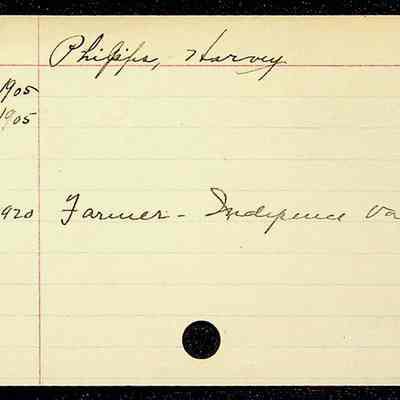 Philips, Harvey
1905
1905
1920 Farmer - Indepence Va